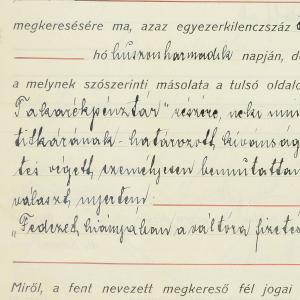 megkeresésére ma, azaz egyezerkilenczszáz
hó huszonharmadik napján, d
a melynek szószerinti másolata a tulsó oldalo
Takarékpénztár" részére, neki mun
titkárának - határozott kivánság
tei végett, személyesen bemutattam
választ nyertem:
"Fedezet hiányában a váltóra fizetés
Miről, a fent nevezett megkereső fél jogai